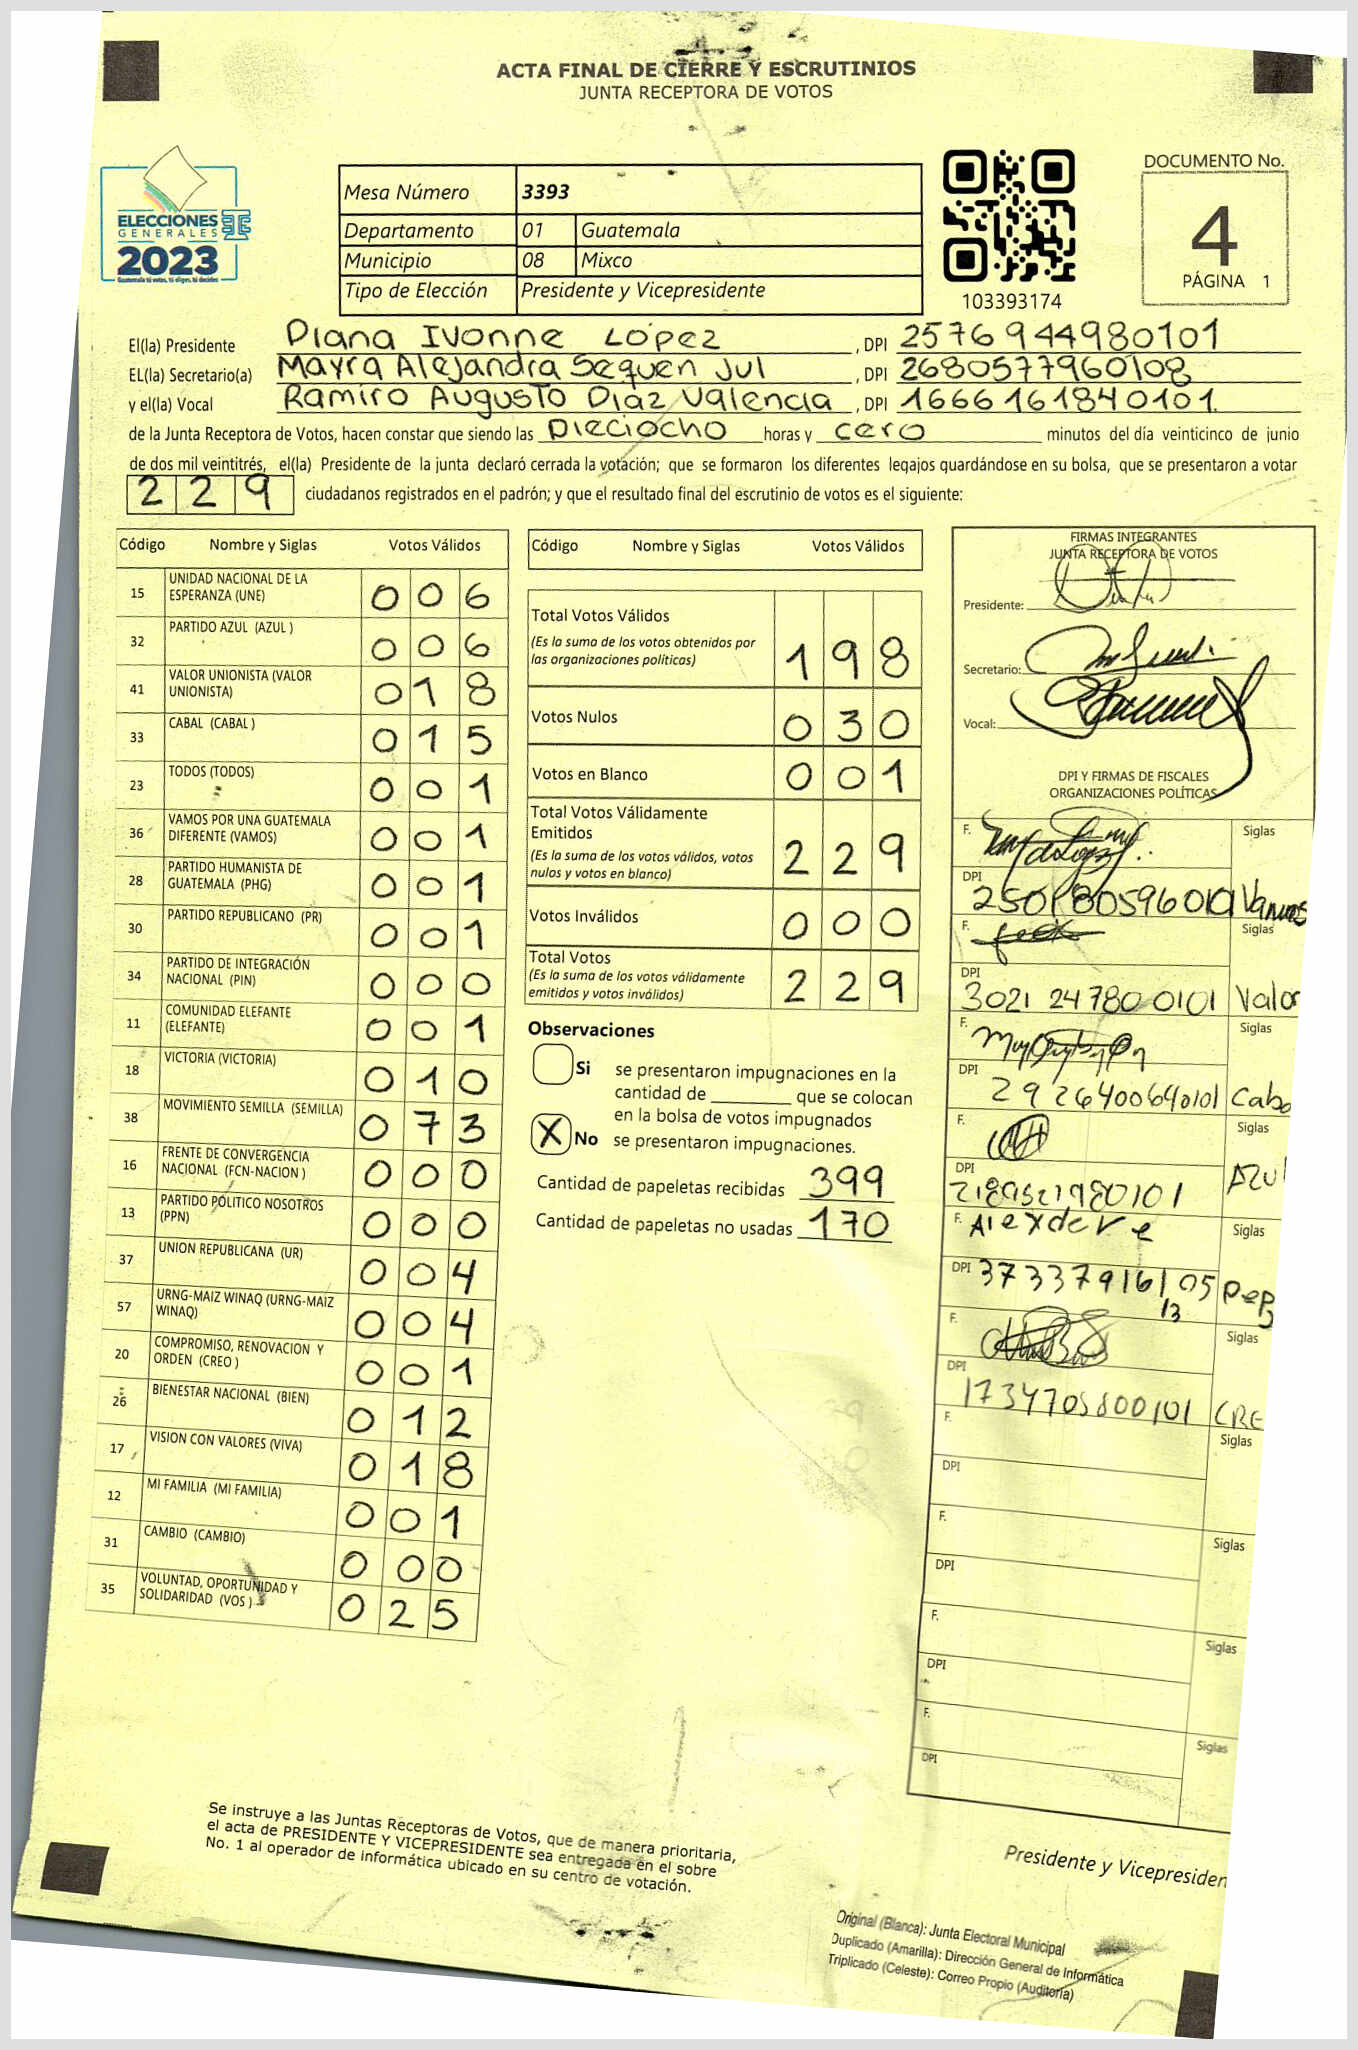 ACTA FINAL DE CIERRE Y ESCRUTINIOS
JUNTA RECEPTORA DE VOTOS
ELECCIONES
GENERALES
2023
Guatemala tú votas, tú eliges, tú decides
Mesa Número 3393
Departamento 01 Guatemala
Municipio 08 Mixco
Tipo de Elección Presidente y Vicepresidente
103393174
DOCUMENTO No.
4
PÁGINA 1
El(la) Presidente Diana Ivonne López , DPI 2576944980101
EL(la) Secretario(a) Mayra Alejandra Sequen Jul , DPI 2680577960108
y el(la) Vocal Ramiro Augusto Diaz Valencia , DPI 1666161840101.
de la Junta Receptora de Votos, hacen constar que siendo las Dieciocho horas y cero minutos del día veinticinco de junio
de dos mil veintitrés, el(la) Presidente de la junta declaró cerrada la votación; que se formaron los diferentes legajos guardándose en su bolsa, que se presentaron a votar
229 ciudadanos registrados en el padrón; y que el resultado final del escrutinio de votos es el siguiente:
Código Nombre y Siglas Votos Válidos
15 UNIDAD NACIONAL DE LA ESPERANZA (UNE) 006
32 PARTIDO AZUL (AZUL ) 006
41 VALOR UNIONISTA (VALOR UNIONISTA) 018
33 CABAL (CABAL ) 015
23 TODOS (TODOS) 001
36 VAMOS POR UNA GUATEMALA DIFERENTE (VAMOS) 001
28 PARTIDO HUMANISTA DE GUATEMALA (PHG) 001
30 PARTIDO REPUBLICANO (PR) 001
34 PARTIDO DE INTEGRACIÓN NACIONAL (PIN) 000
11 COMUNIDAD ELEFANTE (ELEFANTE) 001
18 VICTORIA (VICTORIA) 010
38 MOVIMIENTO SEMILLA (SEMILLA) 073
16 FRENTE DE CONVERGENCIA NACIONAL (FCN-NACION ) 000
13 PARTIDO POLITICO NOSOTROS (PPN) 000
37 UNION REPUBLICANA (UR) 004
57 URNG-MAIZ WINAQ (URNG-MAIZ WINAQ) 004
20 COMPROMISO, RENOVACION Y ORDEN (CREO ) 001
26 BIENESTAR NACIONAL (BIEN) 012
17 VISION CON VALORES (VIVA) 018
12 MI FAMILIA (MI FAMILIA) 001
31 CAMBIO (CAMBIO) 000
35 VOLUNTAD, OPORTUNIDAD Y SOLIDARIDAD (VOS ) 025
Código Nombre y Siglas Votos Válidos
Total Votos Válidos 198
(Es la suma de los votos obtenidos por
las organizaciones políticas)
Votos Nulos 030
Votos en Blanco 001
Total Votos Válidamente
Emitidos 229
(Es la suma de los votos válidos, votos
nulos y votos en blanco)
Votos Inválidos 000
Total Votos 229
(Es la suma de los votos válidamente
emitidos y votos inválidos)
Observaciones
Si se presentaron impugnaciones en la
cantidad de ________ que se colocan
en la bolsa de votos impugnados
X No se presentaron impugnaciones.
Cantidad de papeletas recibidas 399
Cantidad de papeletas no usadas 170
FIRMAS INTEGRANTES
JUNTA RECEPTORA DE VOTOS
Presidente:
Secretario:
Vocal:
DPI Y FIRMAS DE FISCALES
ORGANIZACIONES POLÍTICAS
F. Siglas
DPI Vamos
F. Siglas
DPI 3021 24780 0101 Valor
F. Siglas
DPI 2926400640101 Caba
F. Siglas
DPI 2189521980101 AZUL
F. Siglas
DPI
F. Siglas
DPI 1734705800101 CRE
F. Siglas
DPI
F. Siglas
DPI
F. Siglas
DPI
F. Siglas
DPI
Se instruye a las Juntas Receptoras de Votos, que de manera prioritaria,
el acta de PRESIDENTE Y VICEPRESIDENTE sea entregada en el sobre
No. 1 al operador de informática ubicado en su centro de votación.
Presidente y Vicepresiden
Original (Blanca): Junta Electoral Municipal
Duplicado (Amarilla): Dirección General de Informática
Triplicado (Celeste): Correo Propio (Auditoría)